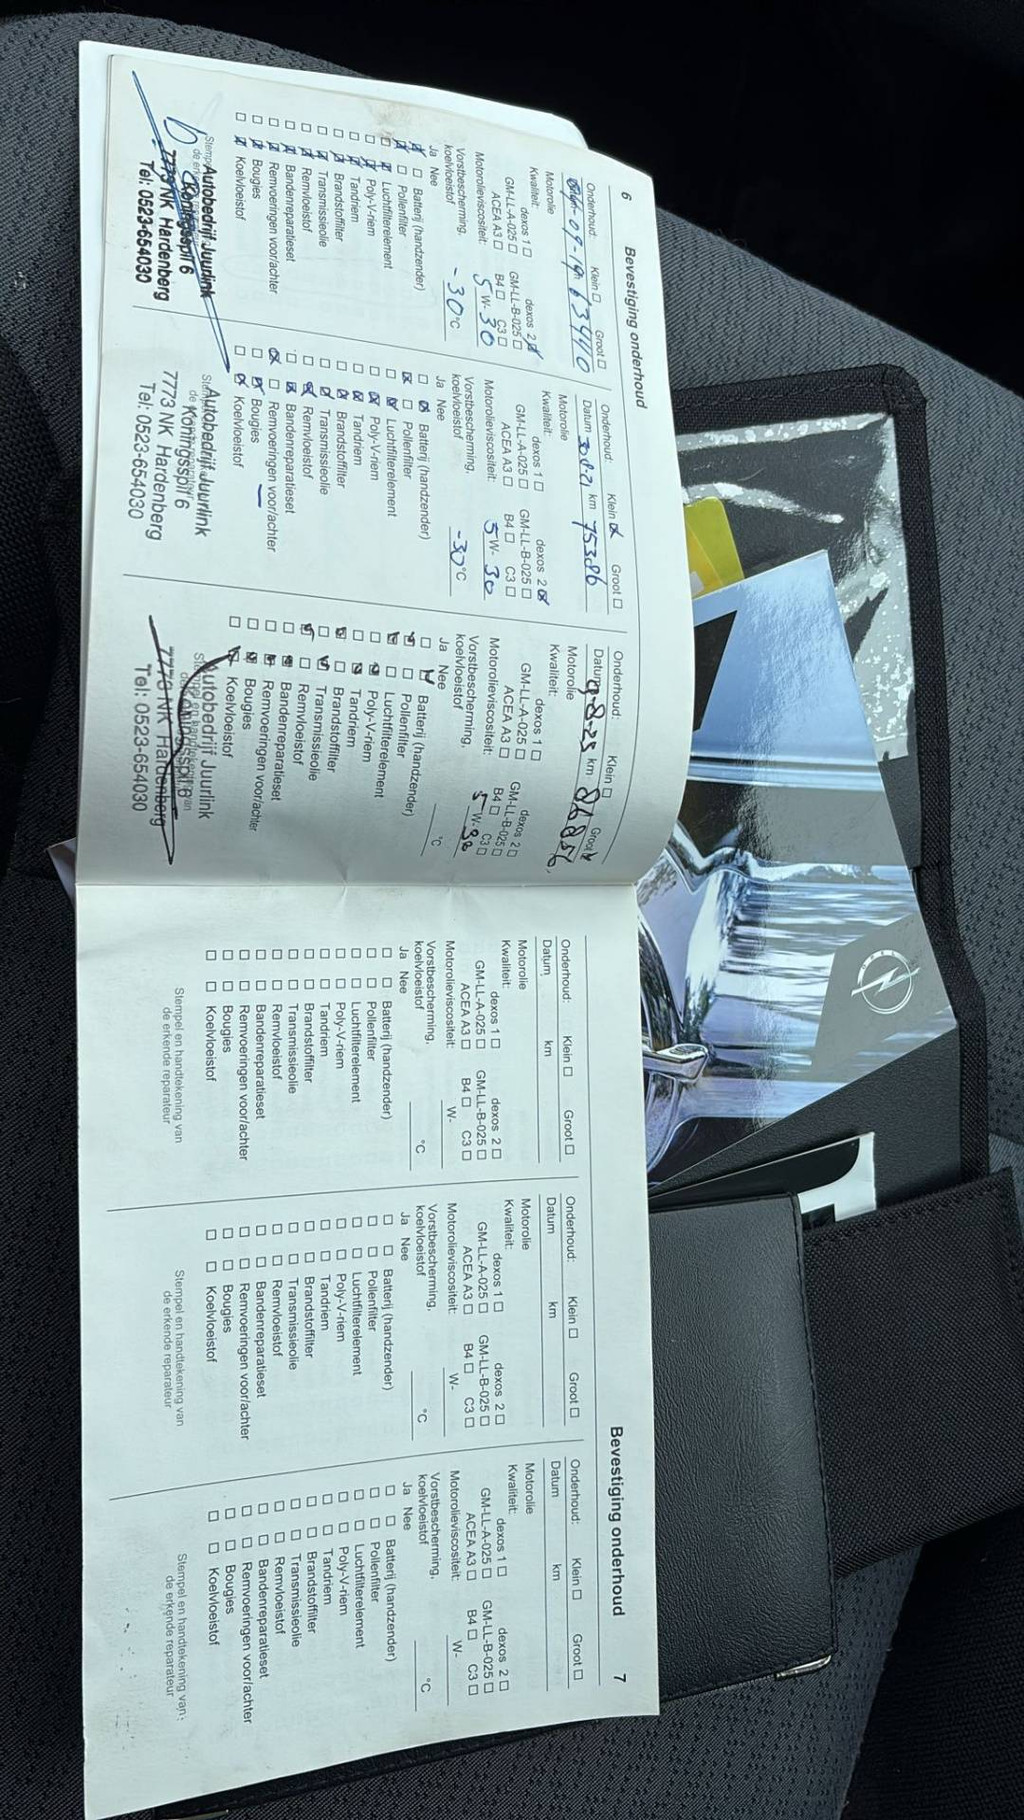 6 Bevestiging onderhoud
Onderhoud: Klein ☐ Groot ☐
09-19 km 63440
Motorolie
Kwaliteit: dexos 1 ☐ dexos 2 ☒
GM-LL-A-025 ☐ GM-LL-B-025 ☐
ACEA A3 ☐ B4 ☐ C3 ☐
Motorolieviscositeit: 5 W- 30
Vorstbescherming,
koelvloeistof -30 °C
Ja Nee
☐ ☒ Batterij (handzender)
☒ ☐ Pollenfilter
☐ ☒ Luchtfilterelement
☐ ☒ Poly-V-riem
☐ ☒ Tandriem
☐ ☒ Brandstoffilter
☐ ☒ Transmissieolie
☐ ☒ Remvloeistof
☐ ☒ Bandenreparatieset
☐ ☒ Remvoeringen voor/achter
☐ ☒ Bougies
☐ ☒ Koelvloeistof
Autobedrijf Juurlink
Koningsspil 6
7773 NK Hardenberg
Tel: 0523-654030
Onderhoud: Klein ☒ Groot ☐
Datum km 75386
Motorolie
Kwaliteit: dexos 1 ☐ dexos 2 ☒
GM-LL-A-025 ☐ GM-LL-B-025 ☐
ACEA A3 ☐ B4 ☐ C3 ☐
Motorolieviscositeit: 5 W- 30
Vorstbescherming,
koelvloeistof -30 °C
Ja Nee
☐ ☒ Batterij (handzender)
☒ ☐ Pollenfilter
☐ ☒ Luchtfilterelement
☐ ☒ Poly-V-riem
☐ ☒ Tandriem
☐ ☒ Brandstoffilter
☐ ☒ Transmissieolie
☐ ☒ Remvloeistof
☐ ☒ Bandenreparatieset
☒ ☐ Remvoeringen voor/achter
☐ ☒ Bougies
☐ ☒ Koelvloeistof
Autobedrijf Juurlink
Koningsspil 6
7773 NK Hardenberg
Tel: 0523-654030
Onderhoud: Klein ☐ Groot ☒
Datum 9-8-23 km 86856
Motorolie
Kwaliteit: dexos 1 ☐ dexos 2 ☐
GM-LL-A-025 ☐ GM-LL-B-025 ☐
ACEA A3 ☐ B4 ☐ C3 ☐
Motorolieviscositeit: 5 W- 30
Vorstbescherming,
koelvloeistof °C
Ja Nee
☐ ☒ Batterij (handzender)
☒ ☐ Pollenfilter
☒ ☐ Luchtfilterelement
☐ ☒ Poly-V-riem
☐ ☒ Tandriem
☒ ☐ Brandstoffilter
☐ ☒ Transmissieolie
☒ ☐ Remvloeistof
☐ ☒ Bandenreparatieset
☐ ☒ Remvoeringen voor/achter
☐ ☒ Bougies
☐ ☒ Koelvloeistof
Autobedrijf Juurlink
Koningsspil 6
7773 NK Hardenberg
Tel: 0523-654030
Bevestiging onderhoud 7
Onderhoud: Klein ☐ Groot ☐
Datum km
Motorolie
Kwaliteit: dexos 1 ☐ dexos 2 ☐
GM-LL-A-025 ☐ GM-LL-B-025 ☐
ACEA A3 ☐ B4 ☐ C3 ☐
Motorolieviscositeit: W-
Vorstbescherming,
koelvloeistof °C
Ja Nee
☐ ☐ Batterij (handzender)
☐ ☐ Pollenfilter
☐ ☐ Luchtfilterelement
☐ ☐ Poly-V-riem
☐ ☐ Tandriem
☐ ☐ Brandstoffilter
☐ ☐ Transmissieolie
☐ ☐ Remvloeistof
☐ ☐ Bandenreparatieset
☐ ☐ Remvoeringen voor/achter
☐ ☐ Bougies
☐ ☐ Koelvloeistof
Stempel en handtekening van
de erkende reparateur
Onderhoud: Klein ☐ Groot ☐
Datum km
Motorolie
Kwaliteit: dexos 1 ☐ dexos 2 ☐
GM-LL-A-025 ☐ GM-LL-B-025 ☐
ACEA A3 ☐ B4 ☐ C3 ☐
Motorolieviscositeit: W-
Vorstbescherming,
koelvloeistof °C
Ja Nee
☐ ☐ Batterij (handzender)
☐ ☐ Pollenfilter
☐ ☐ Luchtfilterelement
☐ ☐ Poly-V-riem
☐ ☐ Tandriem
☐ ☐ Brandstoffilter
☐ ☐ Transmissieolie
☐ ☐ Remvloeistof
☐ ☐ Bandenreparatieset
☐ ☐ Remvoeringen voor/achter
☐ ☐ Bougies
☐ ☐ Koelvloeistof
Stempel en handtekening van
de erkende reparateur
Onderhoud: Klein ☐ Groot ☐
Datum km
Motorolie
Kwaliteit: dexos 1 ☐ dexos 2 ☐
GM-LL-A-025 ☐ GM-LL-B-025 ☐
ACEA A3 ☐ B4 ☐ C3 ☐
Motorolieviscositeit: W-
Vorstbescherming,
koelvloeistof °C
Ja Nee
☐ ☐ Batterij (handzender)
☐ ☐ Pollenfilter
☐ ☐ Luchtfilterelement
☐ ☐ Poly-V-riem
☐ ☐ Tandriem
☐ ☐ Brandstoffilter
☐ ☐ Transmissieolie
☐ ☐ Remvloeistof
☐ ☐ Bandenreparatieset
☐ ☐ Remvoeringen voor/achter
☐ ☐ Bougies
☐ ☐ Koelvloeistof
Stempel en handtekening van
de erkende reparateur